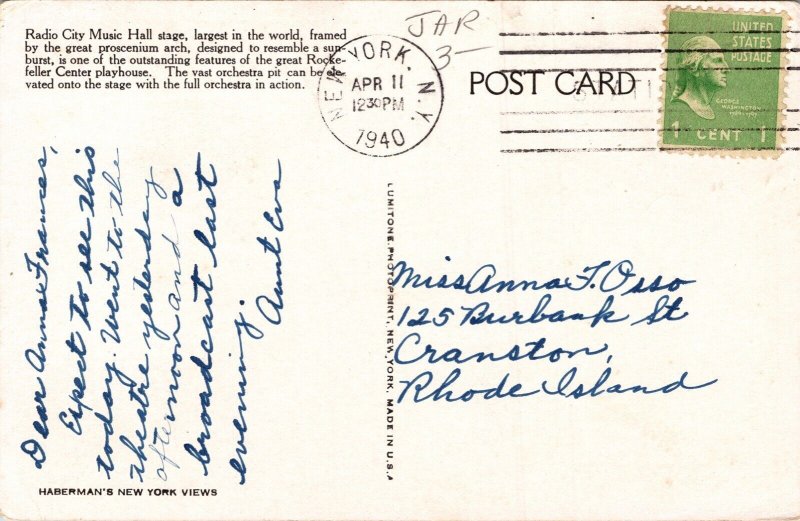 Radio City Music Hall stage, largest in the world, framed
by the great proscenium arch, designed to resemble a sun-
burst, is one of the outstanding features of the great Rocke-
feller Center playhouse. The vast orchestra pit can be ele-
vated onto the stage with the full orchestra in action.
JAR
3—
NEW YORK, N.Y.
APR 11
12 30 PM
1940
POST CARD
UNITED
STATES
POSTAGE
GEORGE
WASHINGTON
1 CENT 1
Dear Anna Frances,
Expect to see this
today. Went to the
theatre yesterday
afternoon and a
broadcast last
evening.
Aunt Eva
LUMITONE PHOTOPRINT, NEW YORK. MADE IN U.S.A
Miss Anna F. Osso
125 Burbank St
Cranston,
Rhode Island
HABERMAN'S NEW YORK VIEWS